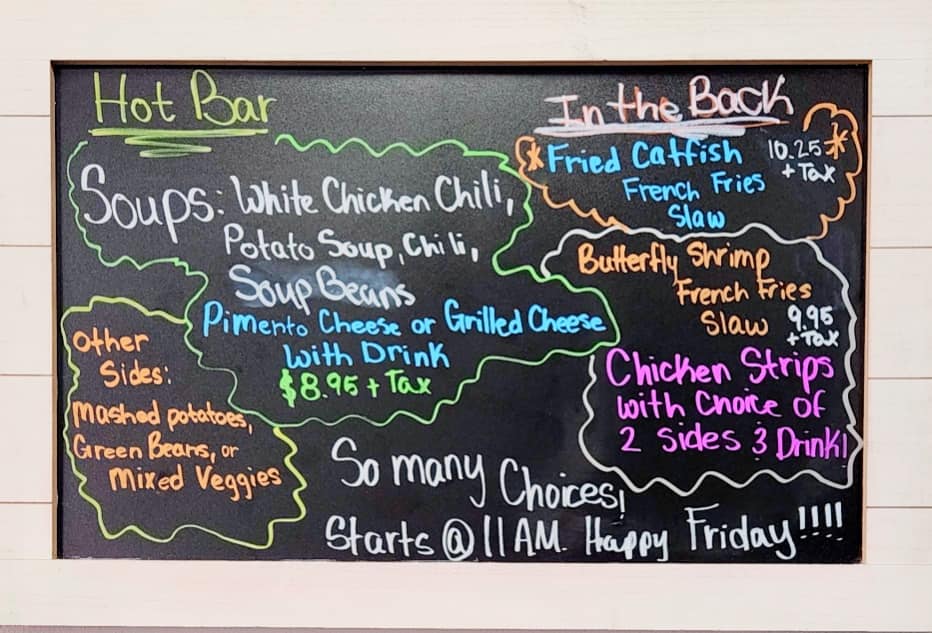 Hot Bar
Soups: White Chicken Chili,
Potato Soup, Chili,
Soup Beans
Pimento Cheese or Grilled Cheese
with Drink
$8.95 + Tax
Other
Sides:
Mashed potatoes,
Green Beans, or
Mixed Veggies
In the Back
*Fried Catfish 10.25*
French Fries + Tax
Slaw
Butterfly Shrimp
French Fries
Slaw 9.95
+ Tax
Chicken Strips
with Choice of
2 sides & Drink!
So many Choices!
Starts @ 11 AM. Happy Friday!!!!